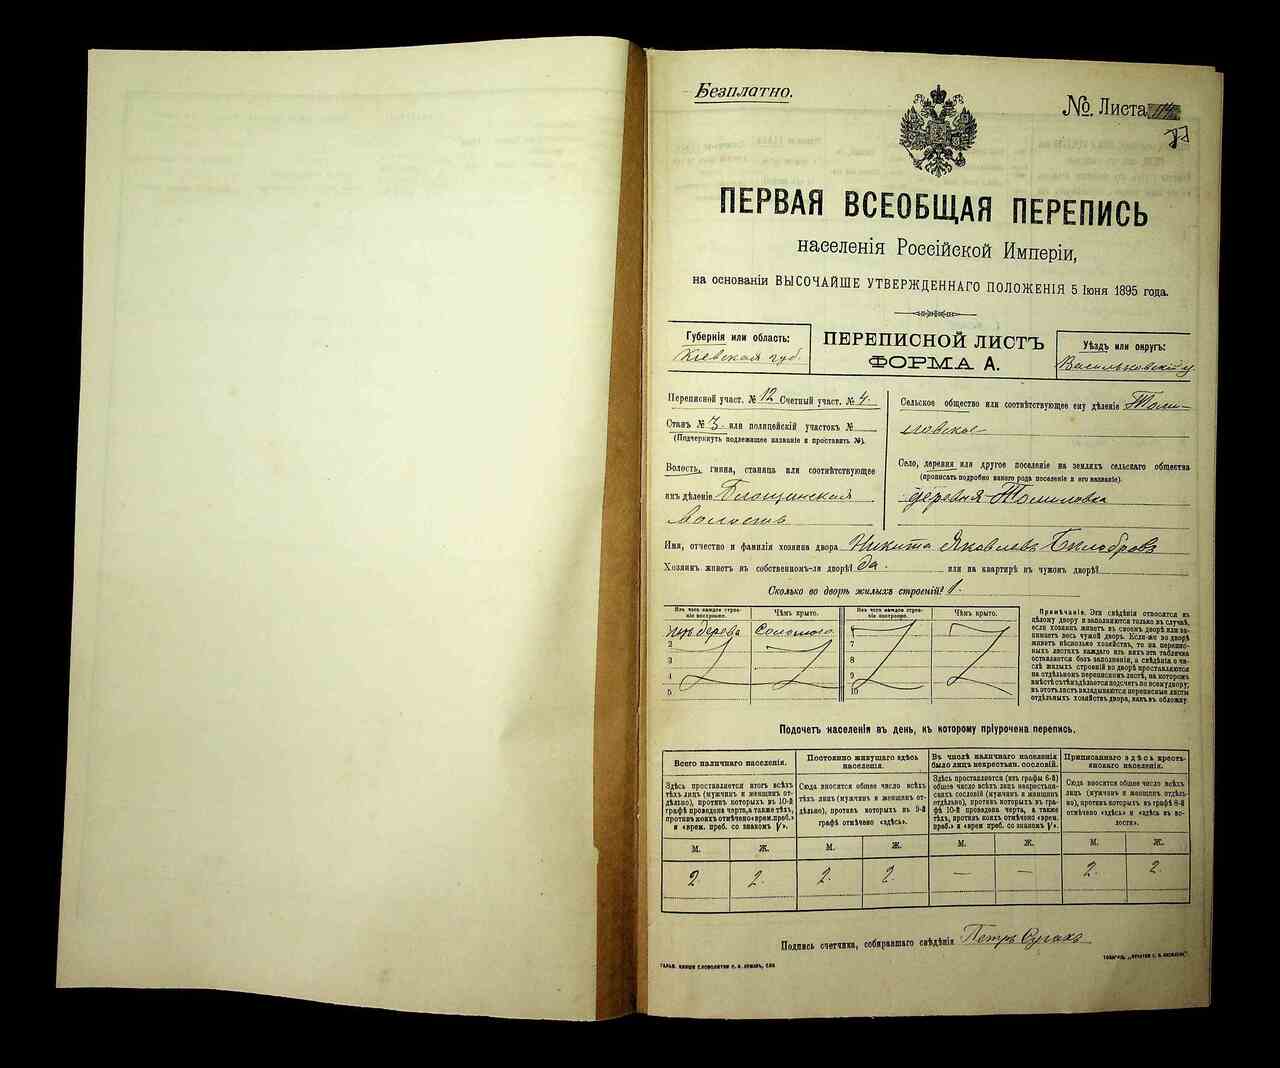 Безплатно.
№. Листа 14
ПЕРВАЯ ВСЕОБЩАЯ ПЕРЕПИСЬ
населенія Россійской Имперіи,
на основаніи ВЫСОЧАЙШЕ УТВЕРЖДЕННАГО ПОЛОЖЕНІЯ 5 Іюня 1895 года.
Губернія или область:
Кіевская губ.
ПЕРЕПИСНОЙ ЛИСТЪ
ФОРМА А.
Уѣздъ или округъ:
Васильковскій у.
Переписной участ. № 12 Счетный участ. № 4.
Станъ № 3. или полицейскій участокъ №
(Подчеркнуть подлежащее названіе и проставить №).
Волость, гмина, станица или соотвѣтствующее
имъ дѣленіе Блощинская
волость
Сельское общество или соотвѣтствующее ему дѣленіе Томи-
ловское
Село, деревня или другое поселеніе на земляхъ сельскаго общества
(прописать подробно какого рода поселеніе и его названіе).
деревня Томиловка
Имя, отчество и фамилія хозяина двора Никита Яковлевъ Билобровъ
Хозяинъ живетъ въ собственномъ-ли дворѣ? да. или на квартирѣ въ чужомъ дворѣ?
Сколько во дворѣ жилыхъ строеній? 1.
Изъ чего каждое строе-
ніе построено.
Чѣмъ крыто.
Изъ чего каждое строе-
ніе построено.
Чѣмъ крыто.
изъ дерева Соломою
2
3
4
5
7
8
9
10
Примѣчаніе. Эти свѣдѣнія относятся къ
цѣлому двору и заполняются только въ случаѣ,
если хозяинъ живетъ въ своемъ дворѣ или за-
нимаетъ весь чужой дворъ. Если-же во дворѣ
живетъ нѣсколько хозяйствъ, то на перепис-
ныхъ листахъ каждаго изъ нихъ эта табличка
оставляется безъ заполненія, а свѣдѣнія о чи-
слѣ жилыхъ строеній во дворѣ проставляются
на отдѣльномъ переписномъ листѣ, на которомъ
вмѣстѣ съ тѣмъ дѣлается подсчетъ по всему двору;
въ этотъ листъ вкладываются переписные листы
отдѣльныхъ хозяйствъ двора, какъ въ обложку.
Подсчетъ населенія въ день, къ которому пріурочена перепись.
Всего наличнаго населенія.
Здѣсь проставляется итогъ всѣхъ
тѣхъ лицъ (мужчинъ и женщинъ от-
дѣльно), противъ которыхъ въ 10-й
графѣ проведена черта, а также тѣхъ,
противъ коихъ отмѣчено «врем. преб.»
и «врем. преб. со знакомъ V».
Постоянно живущаго здѣсь
населенія.
Сюда вносится общее число всѣхъ
тѣхъ лицъ (мужчинъ и женщинъ от-
дѣльно), противъ которыхъ въ 9-й
графѣ отмѣчено «здѣсь».
Въ числѣ наличнаго населенія
было лицъ некрестьян. сословій.
Здѣсь проставляется (изъ графы 6-й)
общее число всѣхъ лицъ некрестьян-
скихъ сословій (мужчинъ и женщинъ
отдѣльно), противъ которыхъ въ гра-
фѣ 10-й проведена черта, а также
тѣхъ, противъ коихъ отмѣчено «врем.
преб.» и «врем. преб. со знакомъ V».
Приписаннаго здѣсь кресть-
янскаго населенія.
Сюда вносится общее число всѣхъ
лицъ (мужчинъ и женщинъ отдѣль-
но), противъ которыхъ въ графѣ 8-й
отмѣчено «здѣсь» и «здѣсь въ во-
лости».
М. Ж. М. Ж. М. Ж. М. Ж.
2 2. 2. 2. — — 2. 2.
Подпись счетчика, собиравшаго свѣдѣнія Петръ Сугакъ